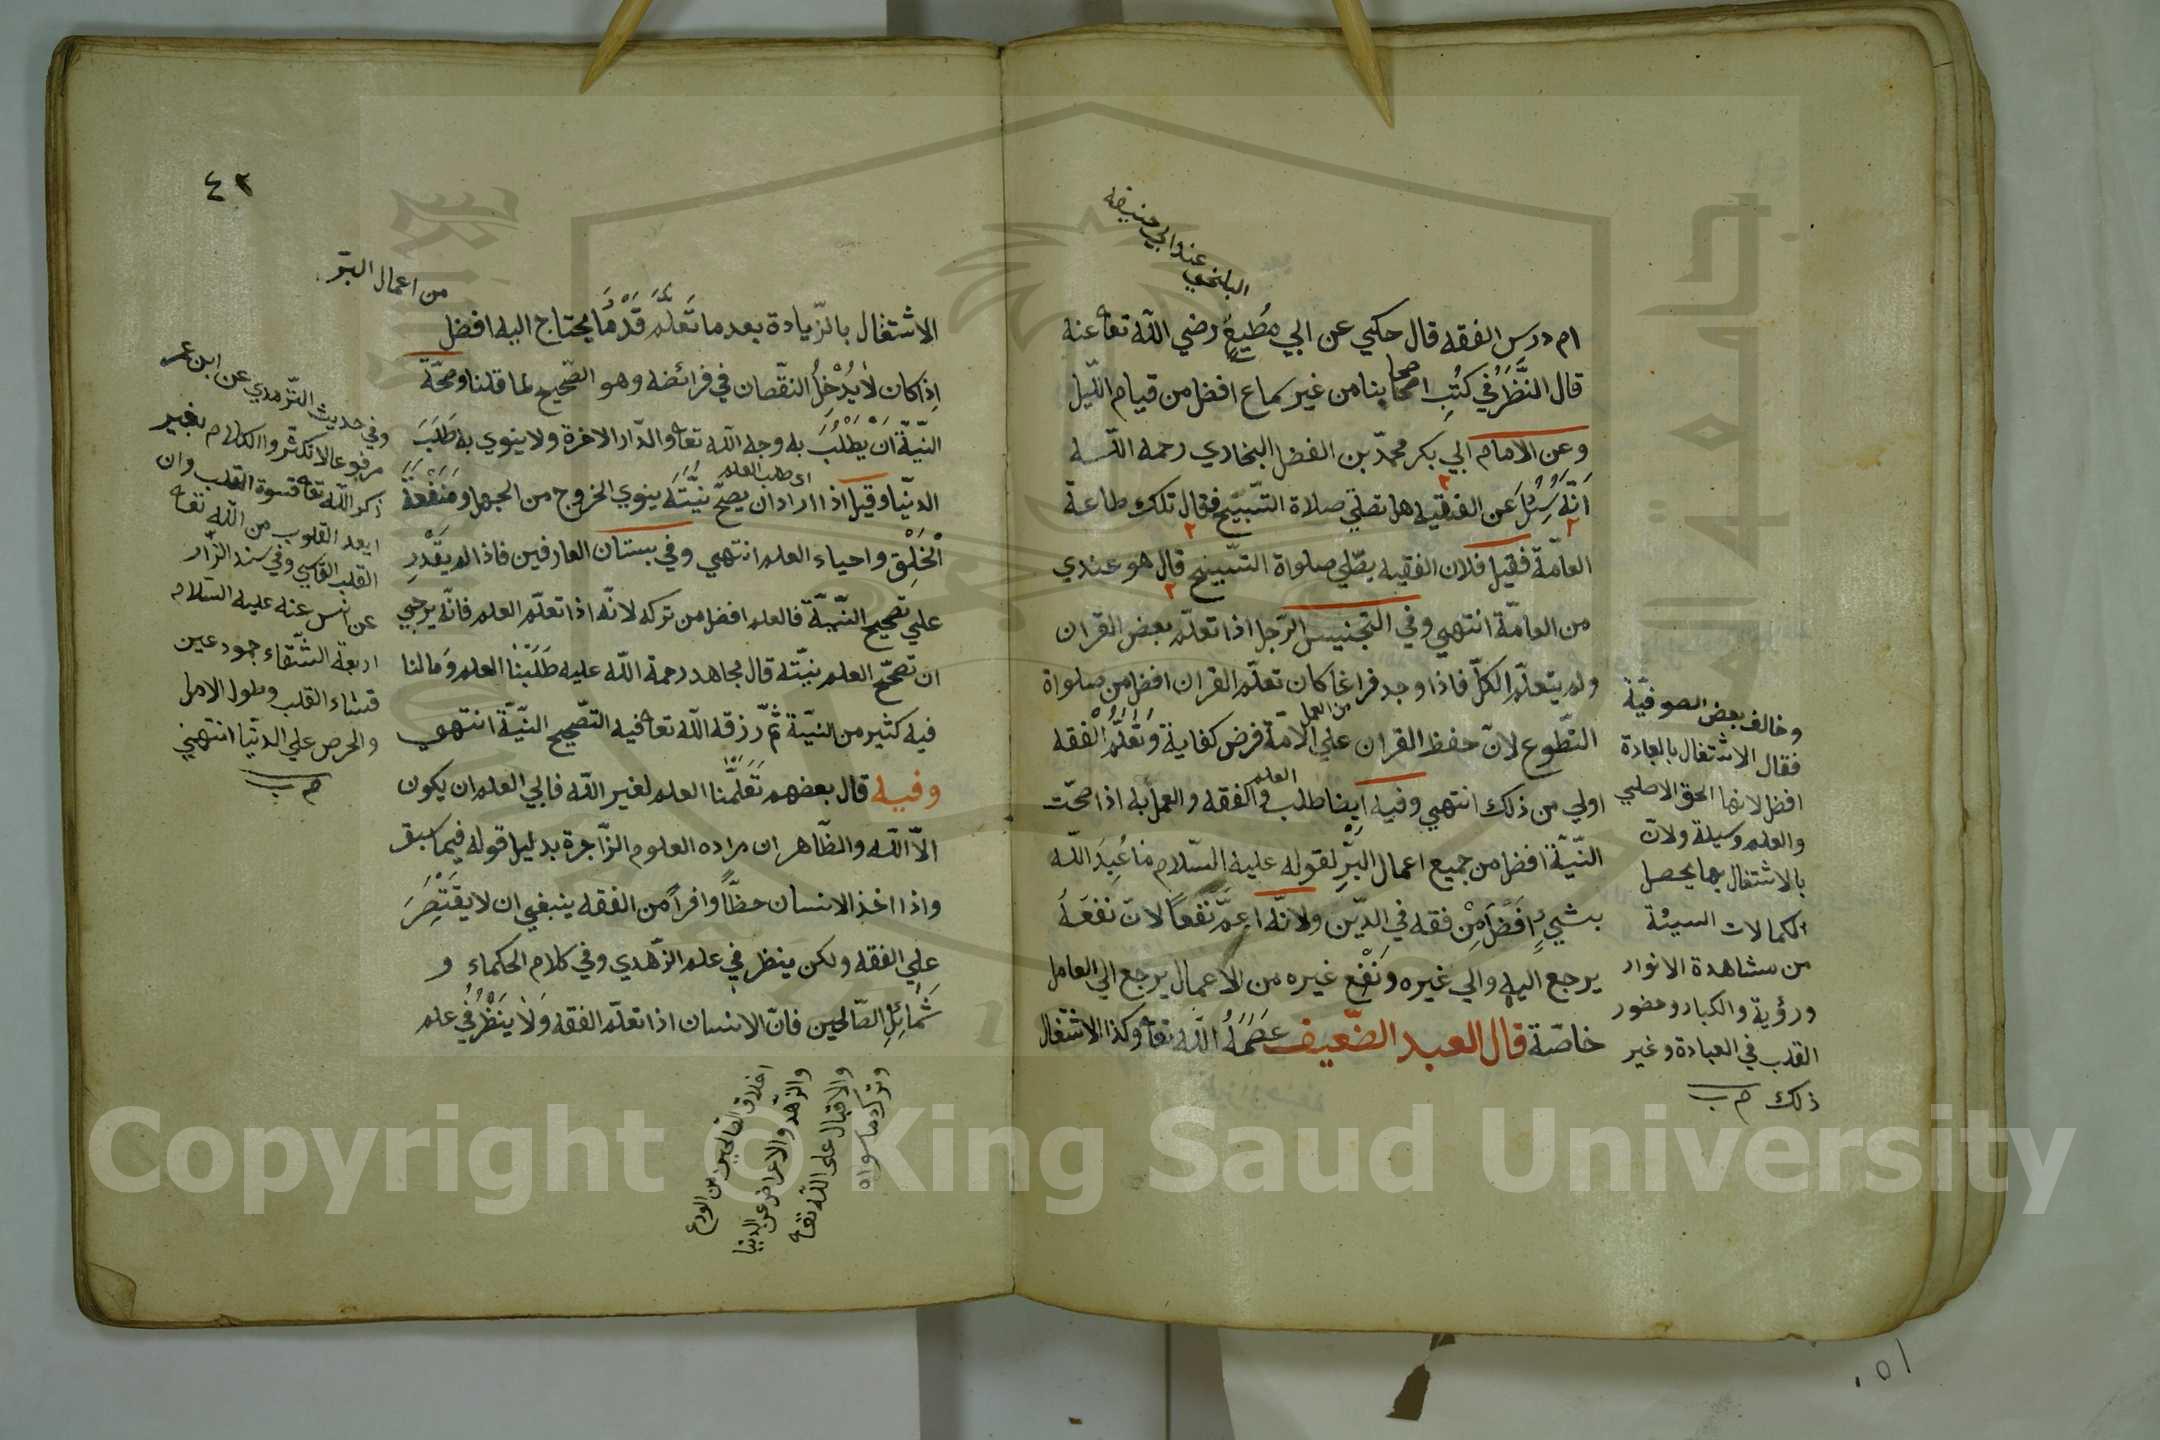 البلخي عند ابي حنيفة
ام درس الفقه قال حكي عن ابي مُطِيعٍ رضي الله تعا عنه
قال النَّظَرُ في كُتُبِ اصحابنا من غير سماع افضل من قيام اللّيل
وعن الامام ابي بكر محمّد بن الفضل البخاري رحمه اللّه
انّه سُئِلَ عن الفقيه هل تصلّي صلاة التّسبيّح فقال تلك طاعة
العامّة فقيل فلان الفقيه يصّلي صلواة التسّبيح قال هو عندي
من العامّة انتهي وفي التجنيس الرّجل اذا تعلّم بعض القران
ولم يتعلّم الكلّ فاذا وجد فراغا كان تعلّم القران افضل من صلواة
التّطوع لانّ حفظ القران علي الامّة فرض كفاية وتَعُلُّمُ الْفقه
من العمل
اولي من ذلك انتهي وفيه ايضا طلب العلم والفقه والعمل به اذا صحّت
النّيّة افضل من جميع اعمال البَرِّ لقوله عليه السّلام مَا عُبِدَ اللّه
بشيءٍ اَفْضَلَ مِنْ فقه في الدّين ولانّه اعمّ نَفْعًا لانّ نَفْعَهُ
يرجع اليه والي غيره ونَفْع غيره من الاعمال يرجع الي العامل
خاصّة قال العبد الضّعيف عَصَمَهُ اللّه تعا وكذا الاشتغال
وخالف بعض الصوفيّة
فقال الاشتغال بالعبادة
افضل لانها الحق الاصلي
والعلم وسيلة ولانّ
بالاشتغال بها يحصل
الكمالات السيئة
من مشاهدة الانوار
ورؤية والكبار وحضور
القلب في العبادة وغير
ذلك
٤٢
من اعمال البرّ
الاشتغال بالزّيادة بعد ما تَعَلَّمَ قَدْرَ مَا يحتاج اليه افضل
اِذا كان لَا يُدْخِلُ النقّصان في فرائضه وهو الصّحيح لما قلنا وصحّة
النّيّة اَنْ يَطْلُبَ به وجه اللّه تعا والدّار الاخرة ولا ينوي به طَلَبَ
اي طلب العلم
الدنّيا وقيل اذا اراد ان يصحّ نيّتَه ينوي الخروج من الجهل ومَنْفَعَةَ
الْخَلْق واحياء العلم انتهي وفي بستان العارفين فاذا لم يَقْدِرِ
علي تصحيح النّيّة فالعلم افضل من تركه لانّه اذا تعلّم العلم فانّه يرجي
ان تصحّح العلم نيّته قال مجاهد رحمة اللّه عليه طَلَبْنَا العلم وَمَا لنا
فيه كثير من النيّة ثمّ رزقه اللّه تعا فيه التصّحيح النيّة انتهي
وفيه قال بعضهم تَعَلَّمْنا العلم لغير اللّه فابي العلم ان يكون
الّا اللّه والظّاهر ان مراده العلوم الزّاجرة بدليل قوله فيما سبق
واذا اخذ الانسان حظّاً وافراً من الفقه ينبغي ان لا يقْتَصِرَ
علي الفقه ولكن ينظر في علم الزّهدي وفي كلام الحكماء و
شَمَائِلِ الصّالحين فانّ الانسان اذا تعلّم الفقه وَلَا يَنْظُرُ في علم
وفي حديث التّرمذي عن ابن عمر
مرفوعا لا تكثّروا الكلام بغير
ذكر اللّه تعا قسوة القلب وان
ابعد القلوب من اللّه تعا
القلب القاسي وفي سند البزّار
عن انس عنه عليه السّلام
اربعة الشّقاء جمود عين
قساء القلب وطول الامل
والحرص علي الدنّيا انتهي
اخلاق الصّالحين من الورع
والزهّد والاعراض عن الدنيا
والاقبال على اللّه تعا
وترك ما سواه
Copyright © King Saud University